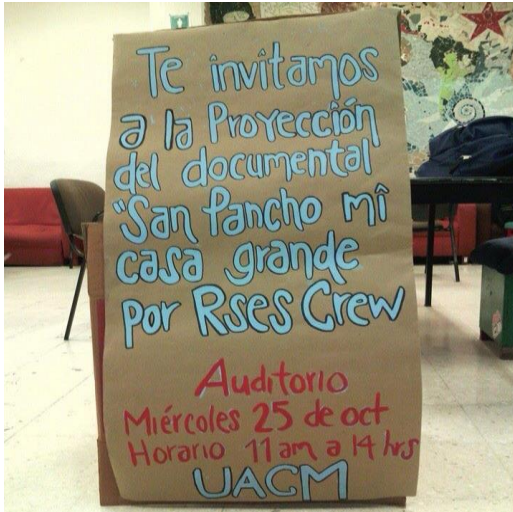 Te invitamos
a la Proyección
del documental
"San Pancho mi
casa grande
por Rses Crew
Auditorio
Miércoles 25 de oct
Horario 11 am a 14 hrs
UACM